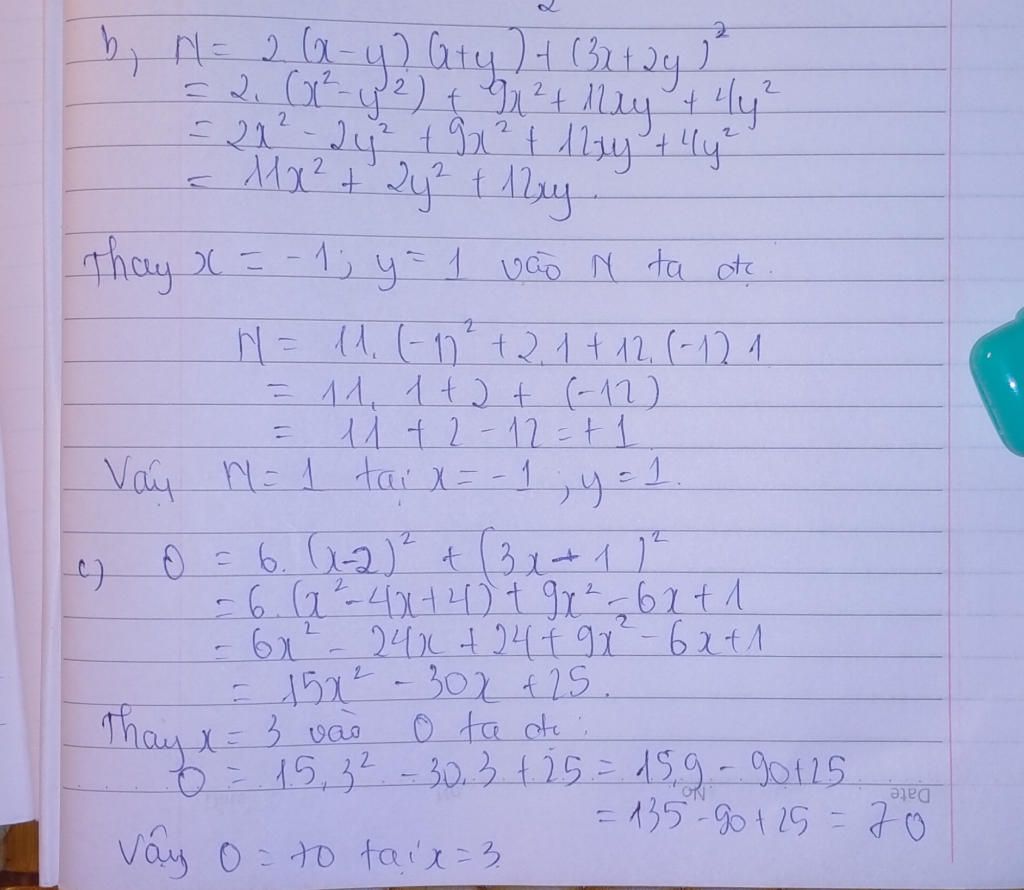 2
b, N = 2 (x-y) (x+y) + (3x+2y)²
= 2. (x²-y²) + 9x² + 12xy + 4y²
= 2x² - 2y² + 9x² + 12xy + 4y²
= 11x² + 2y² + 12xy.
Thay x = -1; y = 1 vào N ta đc.
N = 11. (-1)² + 2.1 + 12. (-1).1
= 11. 1 + 2 + (-12)
= 11 + 2 - 12 = +1
Vậy N = 1 tại x = -1, y = 1.
c) O = 6. (x-2)² + (3x-1)²
= 6. (x²-4x+4) + 9x² - 6x + 1
= 6x² - 24x + 24 + 9x² - 6x + 1
= 15x² - 30x + 25.
Thay x = 3 vào O ta đc:
O = 15.3² - 30.3 + 25 = 15.9 - 90 + 25
No Date
= 135 - 90 + 25 = 70
Vậy O = 70 tại x = 3